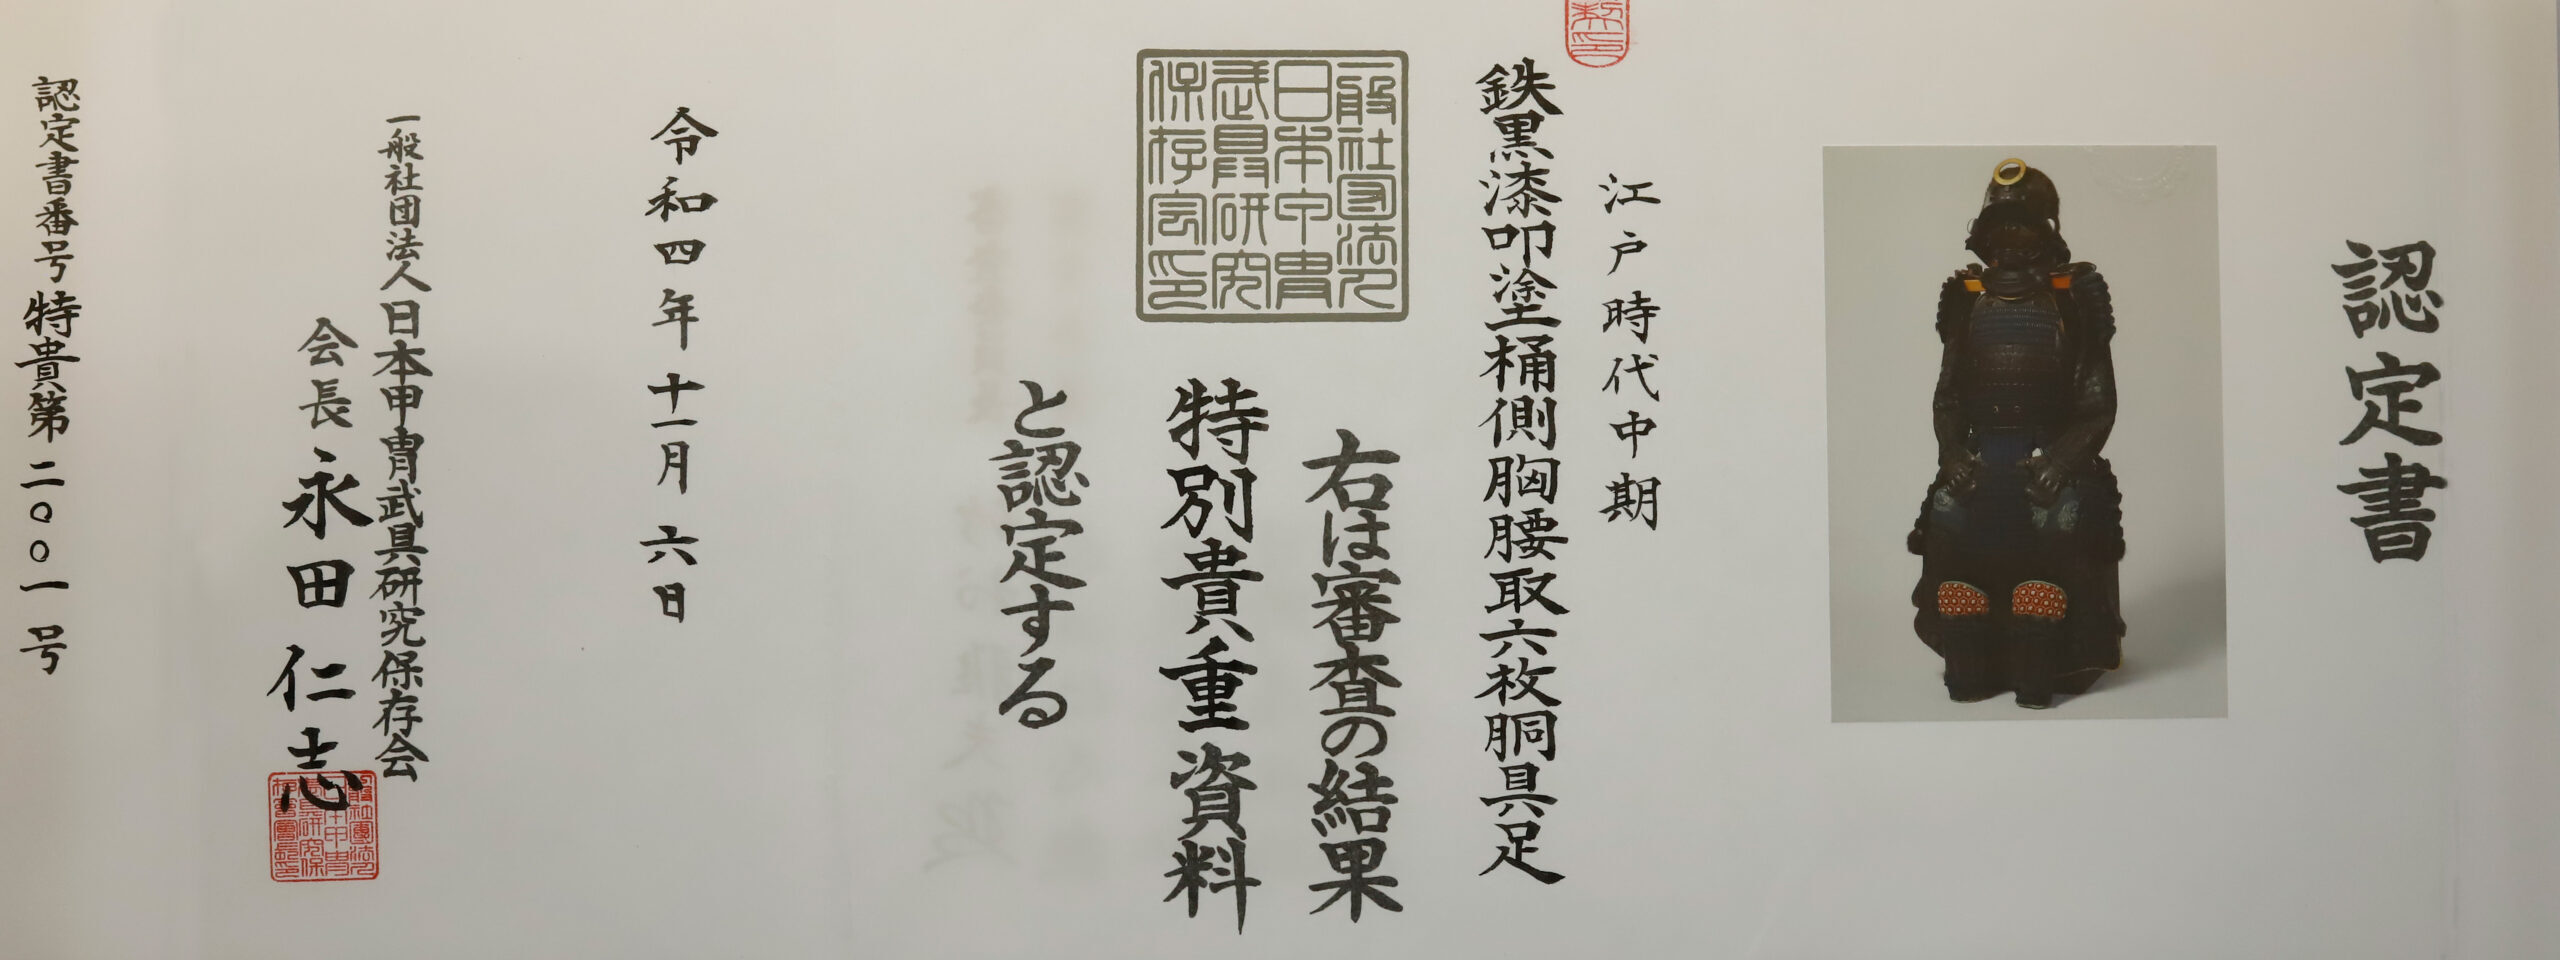 認定書
江戸時代中期
鉄黒漆叩塗桶側胸腰取六枚胴具足
右は審査の結果
特別貴重資料
と認定する
一般社団法人
日本甲冑
武具研究
保存会印
令和四年十一月六日
一般社団法人日本甲冑武具研究保存会
会長永田仁志
認定書番号特貴第二〇〇一号